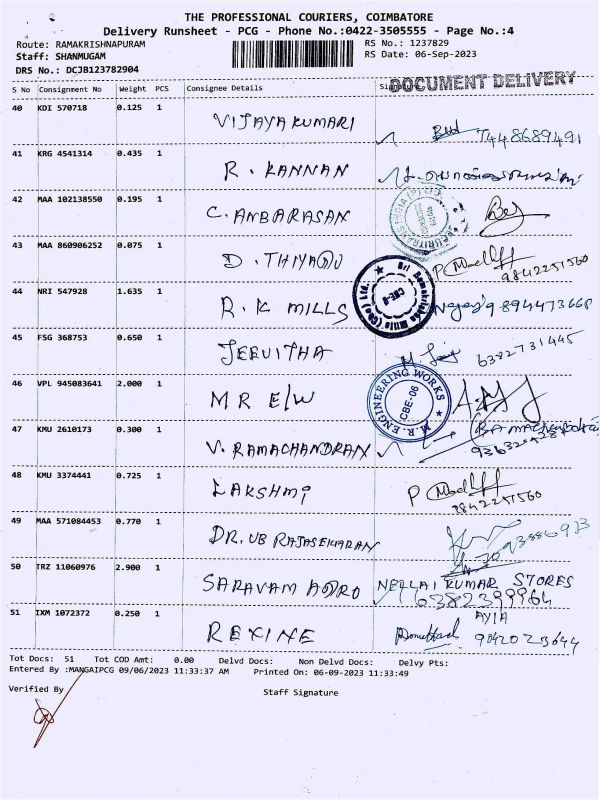 THE PROFESSIONAL COURIERS, COIMBATORE
Delivery Runsheet - PCG - Phone No.:0422-3505555 - Page No.:4
Route: RAMAKRISHNAPURAM RS No.: 1237829
Staff: SHANMUGAM RS Date: 06-Sep-2023
DRS No.: DCJB123782904
DOCUMENT DELIVERY
S No Consignment No Weight PCS Consignee Details
40 KDI 570718 0.125 1 VIJAYAKUMARI 7448689491
41 KRG 4541314 0.435 1 R. KANNAN
42 MAA 102138550 0.195 1 C. ANBARASAN
43 MAA 860906252 0.075 1 D. THIYAGU 9842251560
44 NRI 547928 1.635 1 R. K MILLS
Sri Ramakrishna Mills (Cbe) Ltd. CBE-6
45 FSG 368753 0.650 1 JEEVITHA 6382731445
46 VPL 945083641 2.000 1 M R E/W
M.R. ENGINEERING WORKS CBE-06
47 KMU 2610173 0.300 1 V. RAMACHANDRAN
48 KMU 3374441 0.725 1 LAKSHMI 9842251560
49 MAA 571084453 0.770 1 DR. UB RAJASEKARAN
50 TRZ 11060976 2.900 1 SARAVAM AGRO NELLAI KUMAR STORES
6382399964
51 IXM 1072372 0.250 1 REXINE
Tot Docs: 51 Tot COD Amt: 0.00 Delvd Docs: Non Delvd Docs: Delvy Pts:
Entered By :MANGAIPCG 09/06/2023 11:33:37 AM Printed On: 06-09-2023 11:33:49
Verified By Staff Signature